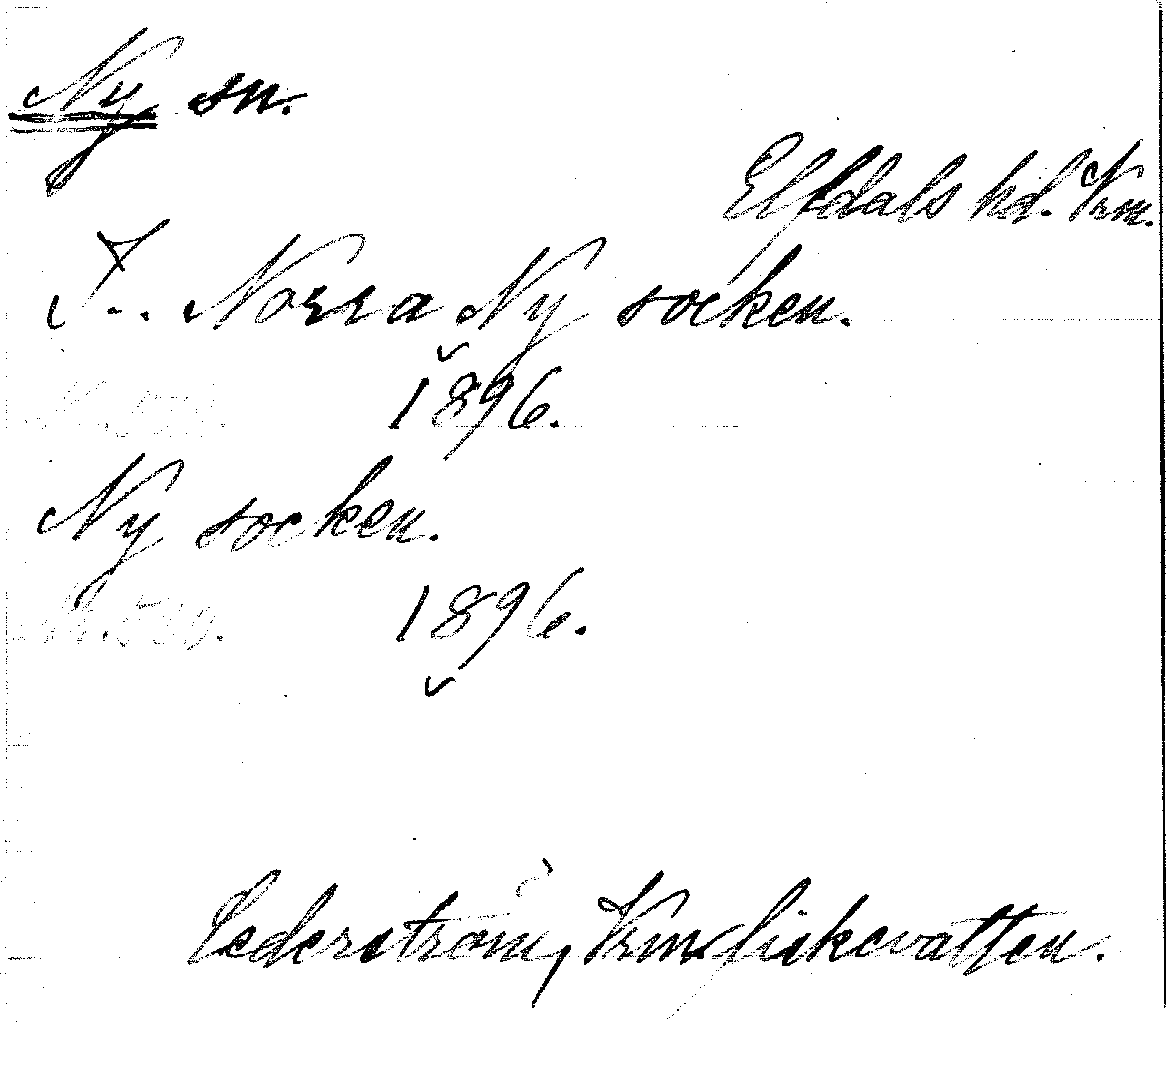 Ny sn.
Elfdals hd. Vrm.
I.. Norra Ny socken.
1896.
Ny socken.
1896.
Cederström, Vrms fiskevatten.